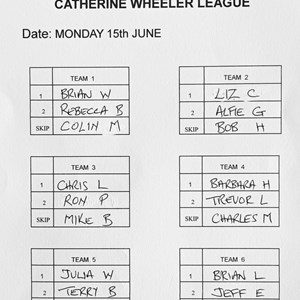 CATHERINE WHEELER LEAGUE
Date: MONDAY 15th JUNE
TEAM 1
1 BRIAN W
2 REBECCA B
SKIP COLIN M
TEAM 2
1 LIZ C
2 ALFIE G
SKIP BOB H
TEAM 3
1 CHRIS L
2 RON P
SKIP MIKE B
TEAM 4
1 BARBARA H
2 TREVOR L
SKIP CHARLES M
TEAM 5
1 JULIA W
2 TERRY B
TEAM 6
1 BRIAN L
2 JEFF E